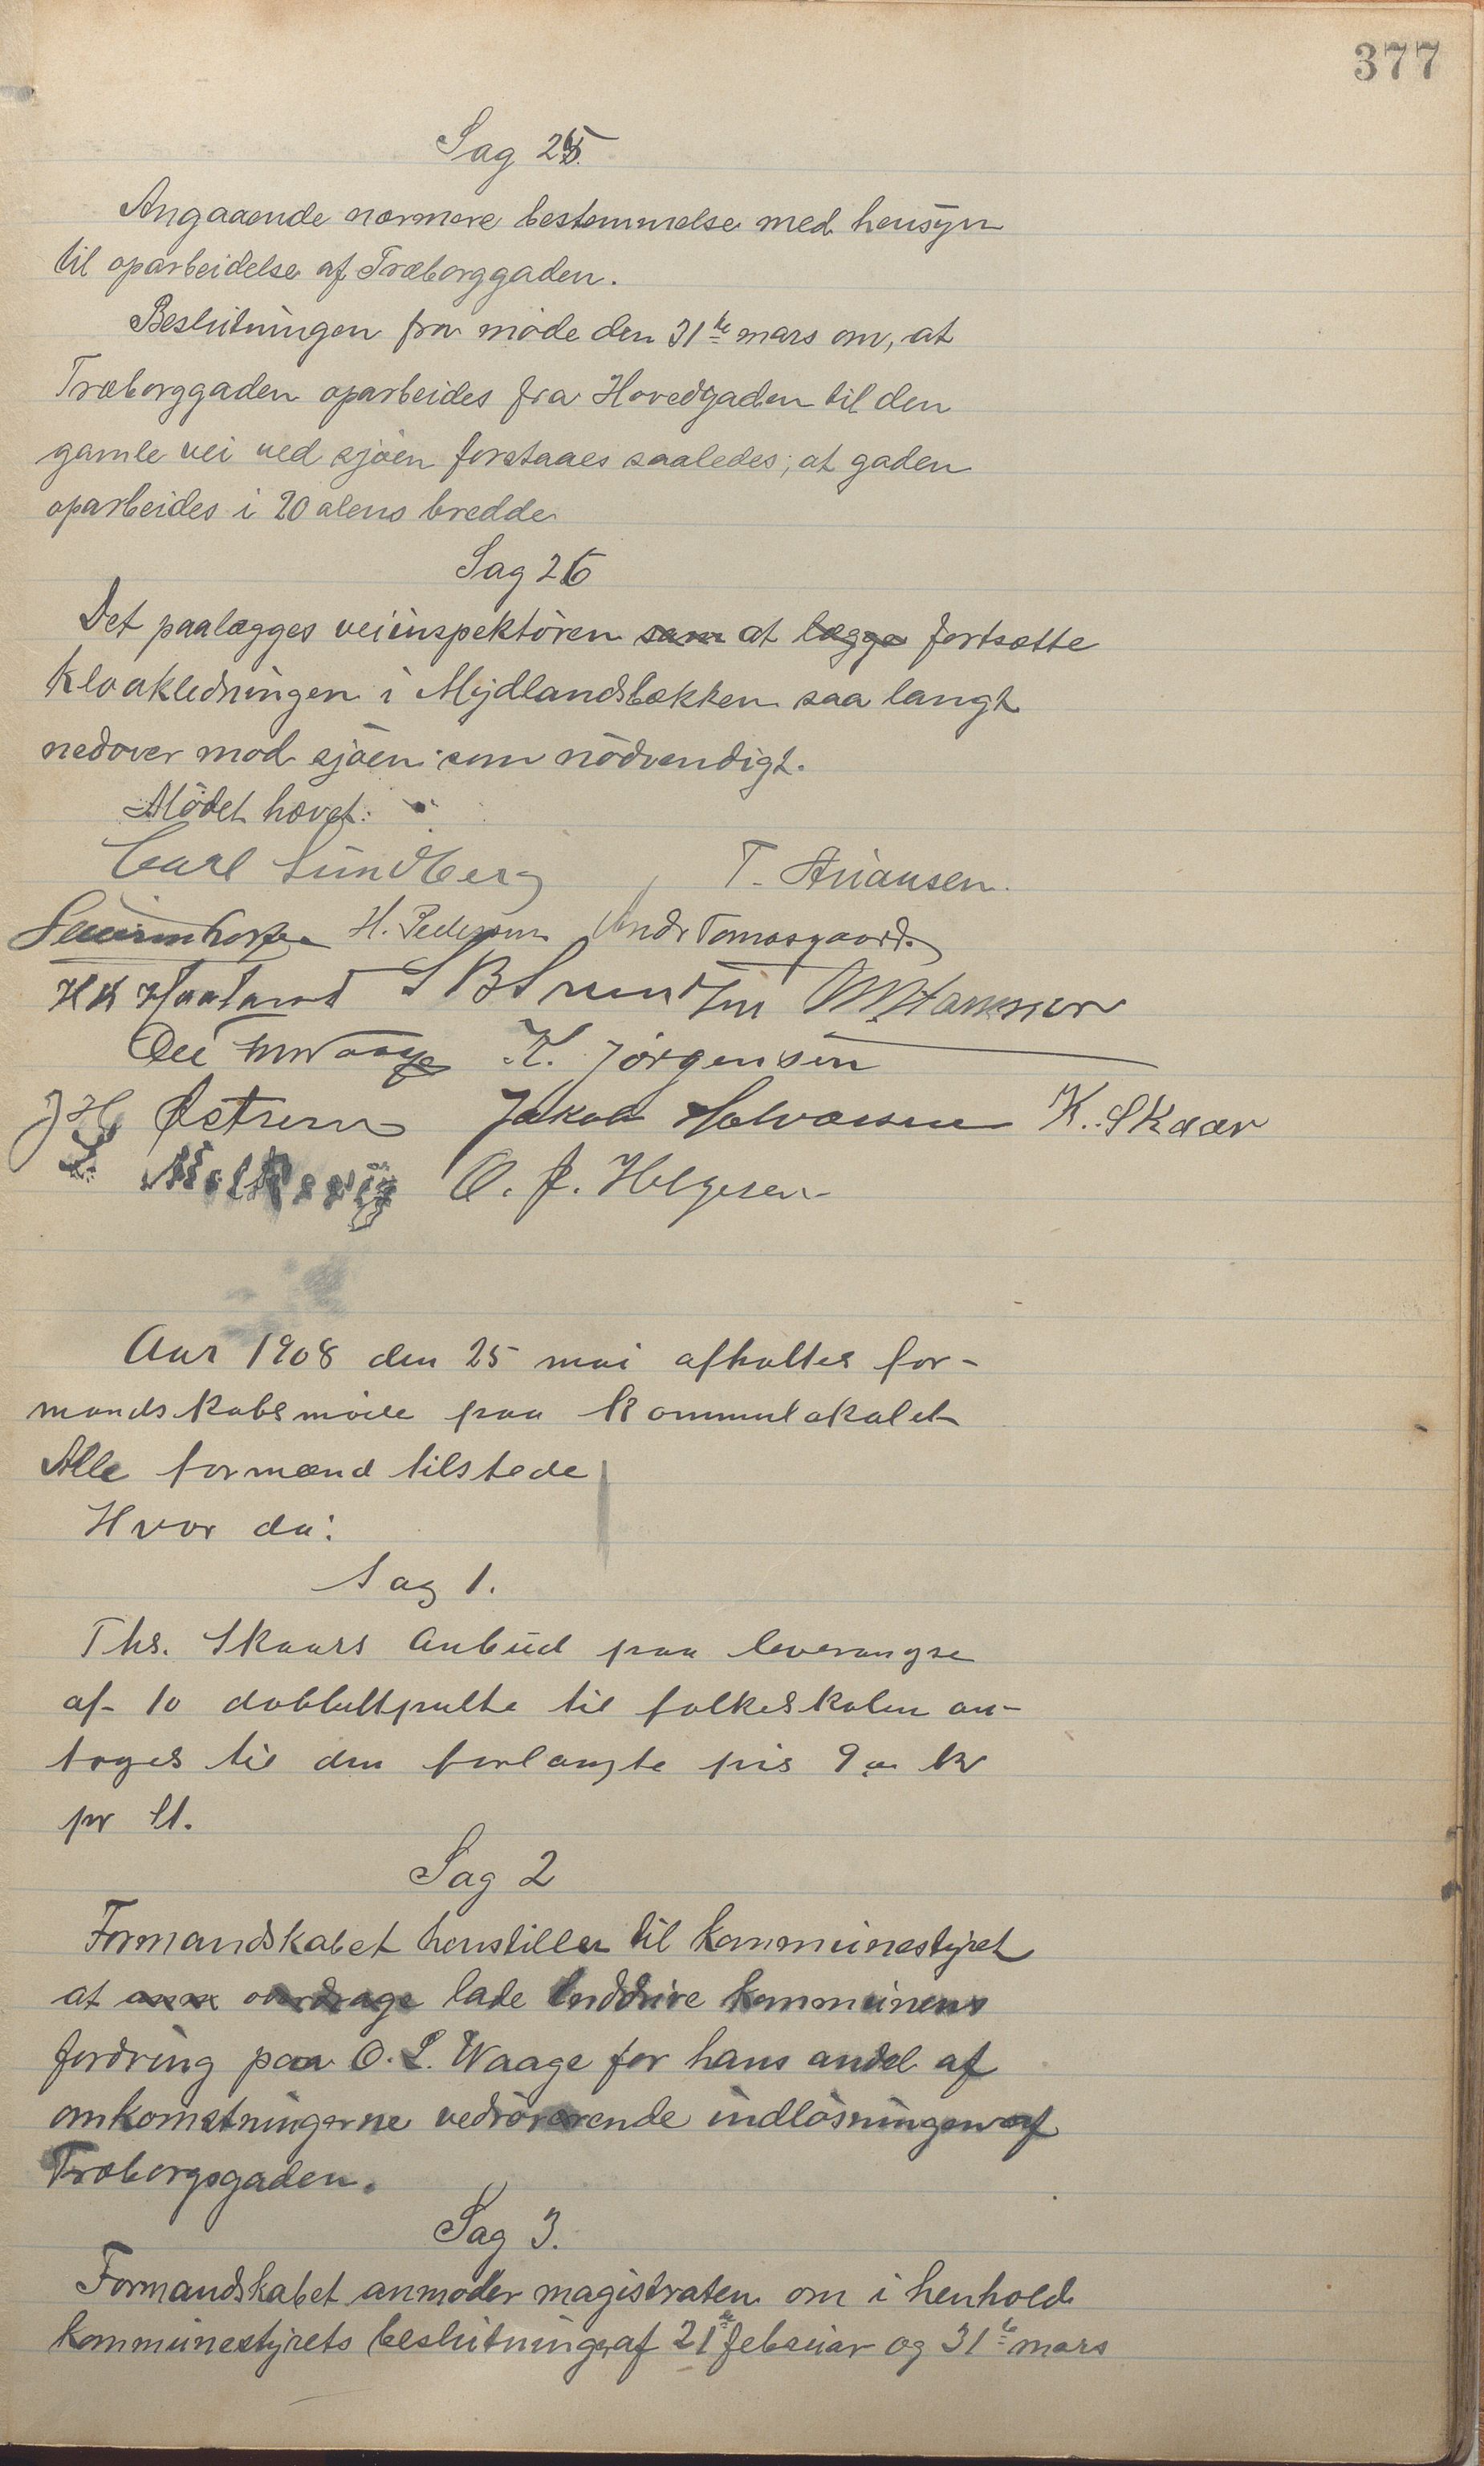 377
Sag 25.
Angaaende nærmere bestemmelse med hensyn
til oparbeidelse af Træborggaden.
Beslutningen fra møde den 31te mars om, at
Træborggaden oparbeides fra Hovedgaden til den
gamle vei ved sjøen forstaaes saaledes, at gaden
oparbeides i 20 alens bredde
Sag 26
Det paalægges veiinspektøren som at lægge fortsætte
kloakledningen i Mydlandsbækken saa langt
nedover mod sjøen som nødvendigt.
Mödet hævet.
Carl Sundberg T. Ariansen.
H. Pedersen Andr Tomasgaard.
H K Haaland S B M Hammer
K. Jörgensen
J H Østrem Jakob K. Skaar
O. J. Helgesen
Aar 1908 den 25 mai afholtes for-
mandskabsmøde paa kommulokalet
Alle formænd tilstede
Hvor da:
Sag 1.
Ths. Skaars Anbud paa leverangse
af 10 dobbeltpulte til folkeskolen an-
toges til den forlangte pris 9 kr
pr st.
Sag 2
Formandskabet henstiller til kommunestyret
at anm overdrage lade inddrive kommunens
fordring paa O. L. Waage for hans andel af
omkomstningerne vedrørerende indløsningen af
Træborgsgaden.
Sag 3.
Formandskabet anmoder magistraten om i henhold
kommunestyrets beslutninger af 21te februar og 31te mars